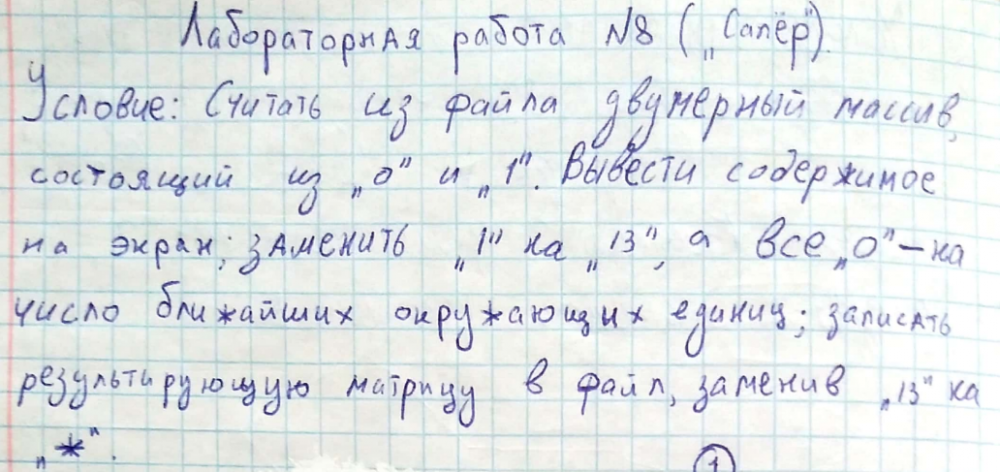 Лабораторная работа №8 („Сапёр").
Условие: Считать из файла двумерный массив,
состоящий из „0" и „1". Вывести содержимое
на экран; заменить „1" на „13", а все „0" – на
число ближайших окружающих единиц; записать
результирующую матрицу в файл, заменив „13" на
„*".
1